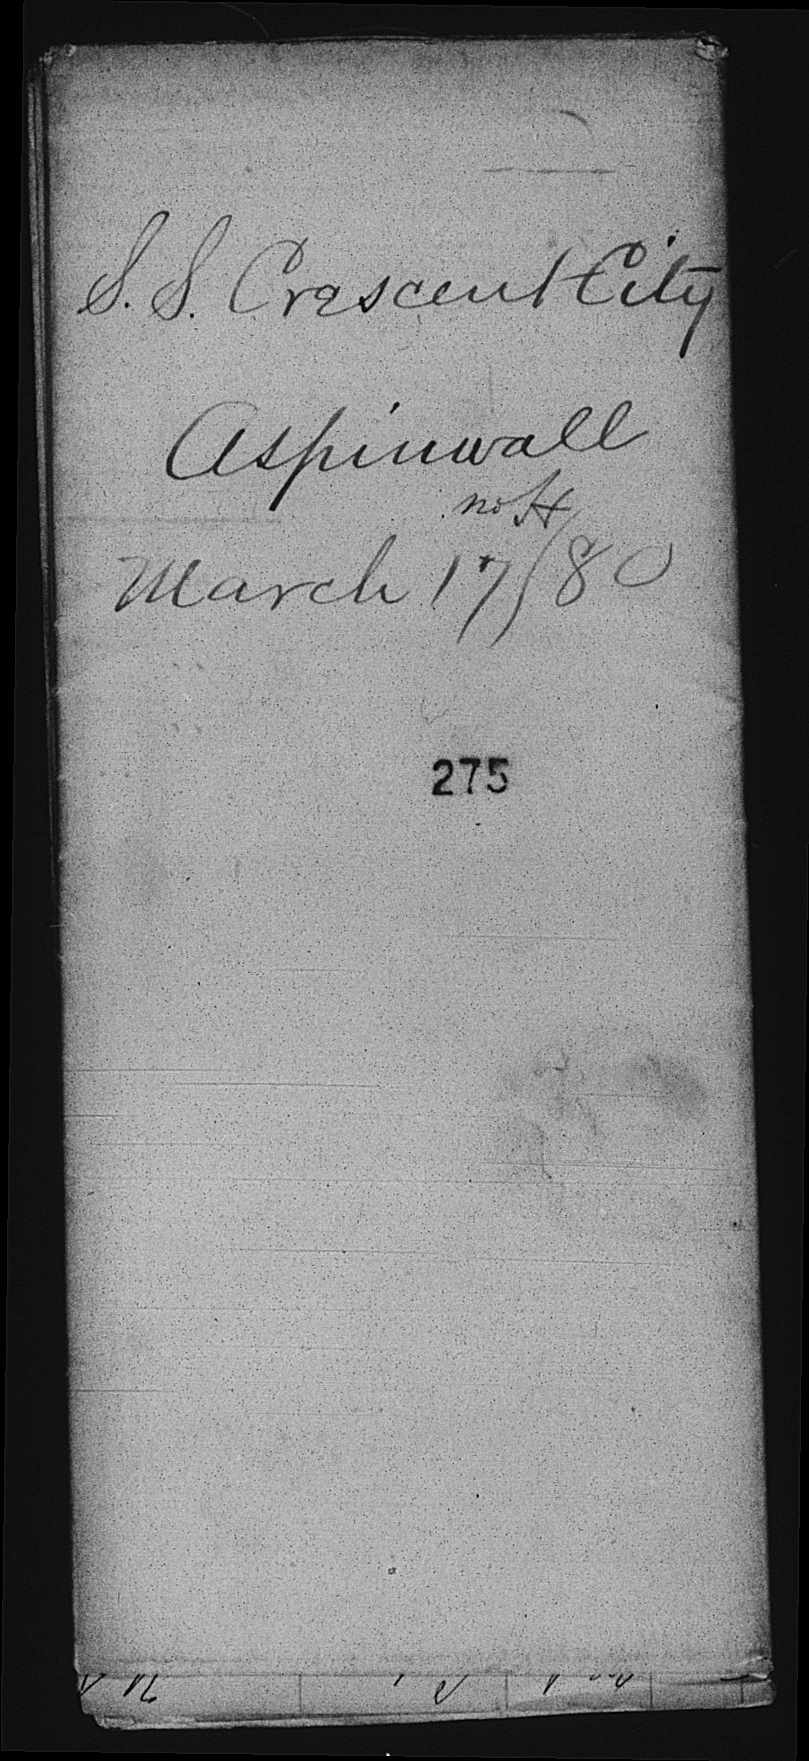 S. S. Crescent City
Aspinwall
no H
March 17/80
275